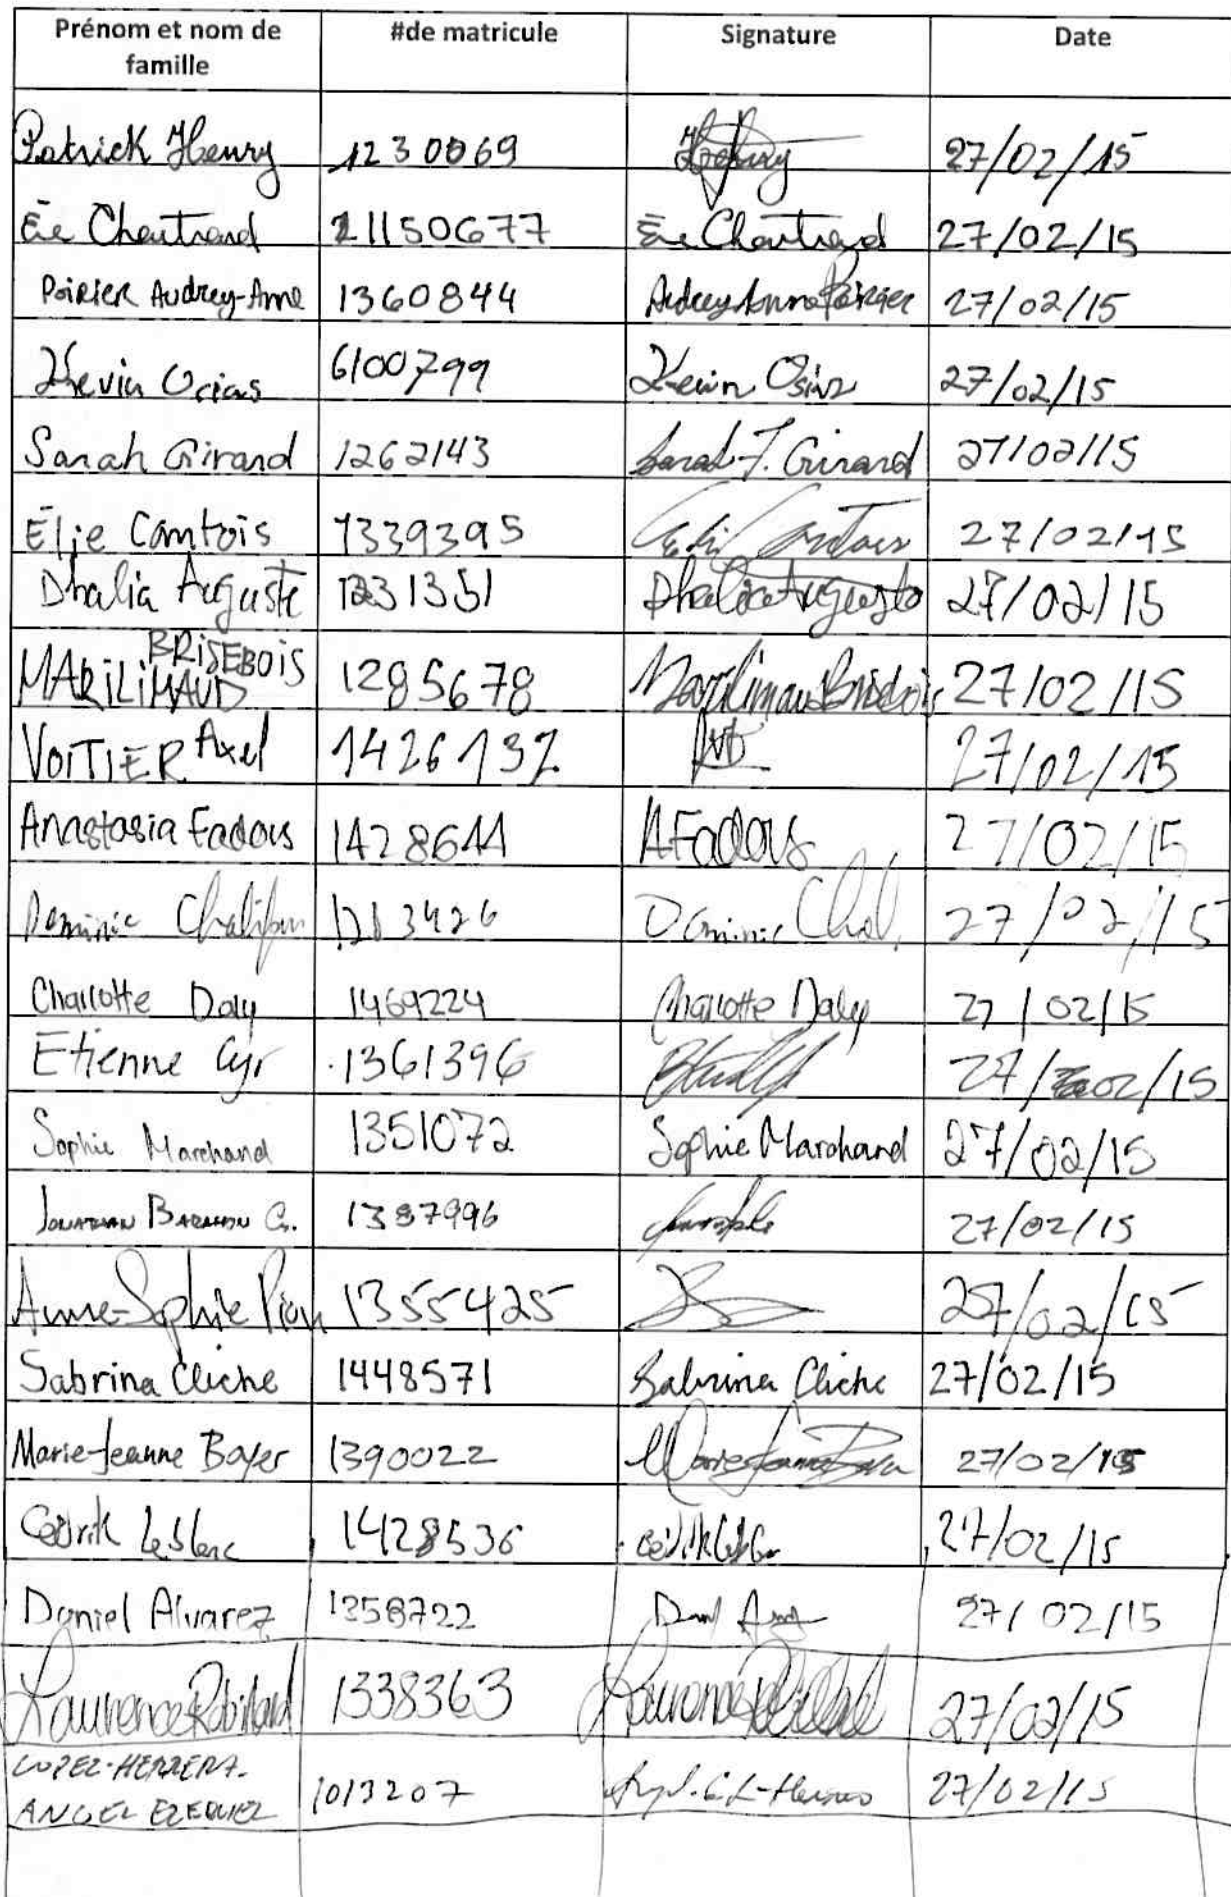 Prénom et nom de famille #de matricule Signature Date
Patrick Henry 1230069 27/02/15
Ève Chartrand 21150677 Ève Chartrand 27/02/15
Poirier Audrey-Anne 1360844 Audrey Anne Poirier 27/02/15
Kevin Orias 6100799 Kevin 27/02/15
Sarah Girard 1262143 Sarah J. Girard 27/02/15
Élie Cantois 1339395 27/02/15
Dhalia Auguste 1231351 Dhalia Auguste 27/02/15
BRISEBOIS
MARILIMAUD 1285678 27/02/15
VOITIER Axel 1426132 27/02/15
Anastasia Fadous 1428644 AFadous 27/02/15
Dominic 1213426 Dominic 27/02/15
Charlotte Daly 1469224 Charlotte Daly 27/02/15
Etienne Cyr 1361396 27/02/15
Sophie Marchand 1351072 Sophie Marchand 27/02/15
JONATHAN BARAHON G. 1387996 27/02/15
Anne-Sophie 1355425 27/02/15
Sabrina Cliche 1448571 Sabrina Cliche 27/02/15
Marie-Jeanne Boyer 1390022 Marie Jeanne 27/02/15
Cédrik Leblanc 1428536 27/02/15
Daniel Alvarez 1358722 27/02/15
Laurence Robillard 1338363 Laurence Robillard 27/02/15
LOPEZ-HERRERA.
ANGEL EZEQUIEL 1013207 27/02/15